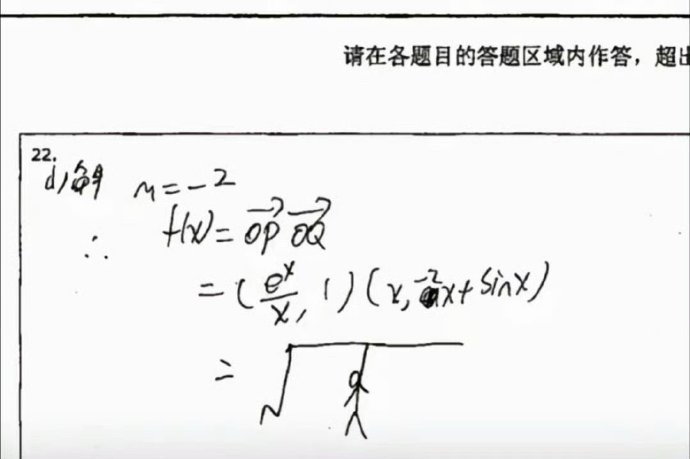 请在各题目的答题区域内作答，超出
22.
(1)解 m=-2
∴ f(x)=\overrightarrow{OP}\overrightarrow{OQ}
=(\frac{e^x}{x}, 1)(x, -2x+sinx)
=√